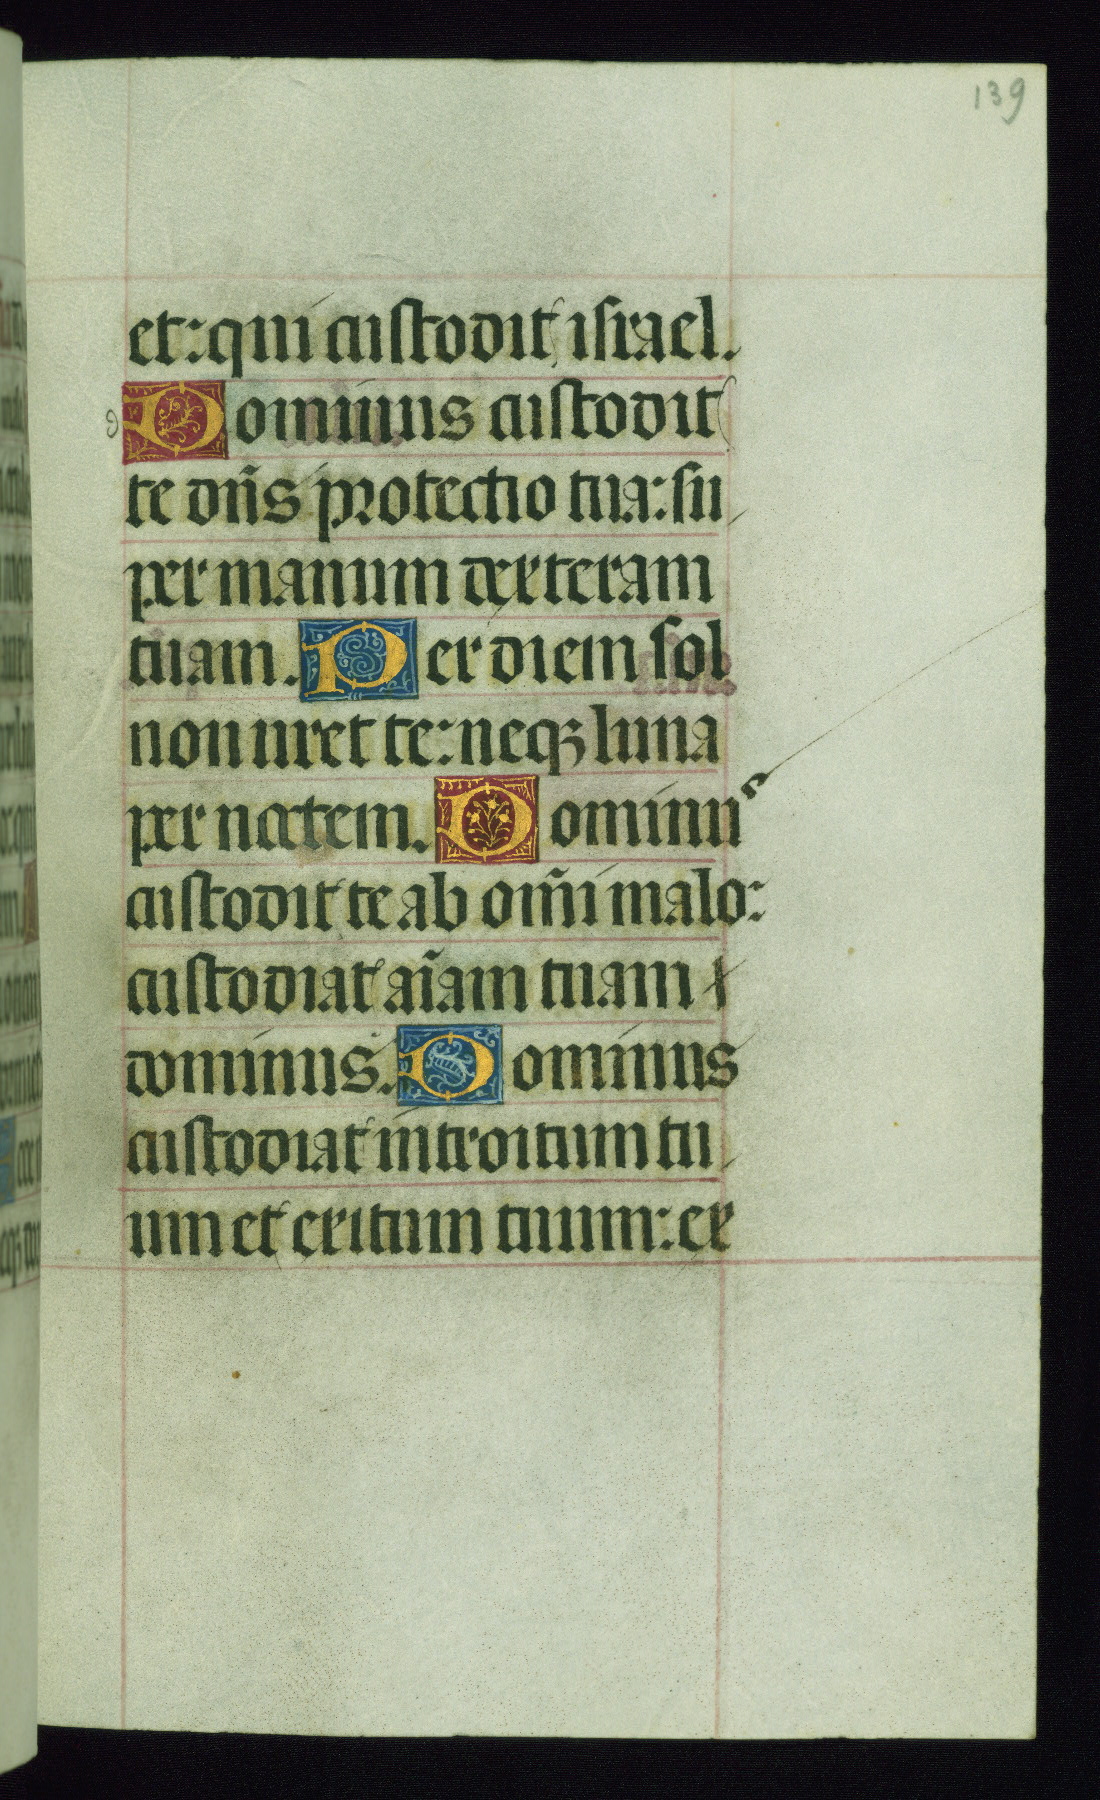 139
et: qui custodit israel.
Dominus custodit
te dñs protectio tua: su
per manum dexteram
tuam. Per diem sol
non uret te: neqꝫ luna
per noctem. Dominus
custodit te ab om̃i malo:
custodiat aĩam tuam
dominus. Dominus
custodiat introitum tu
um et exitum tuum: ex